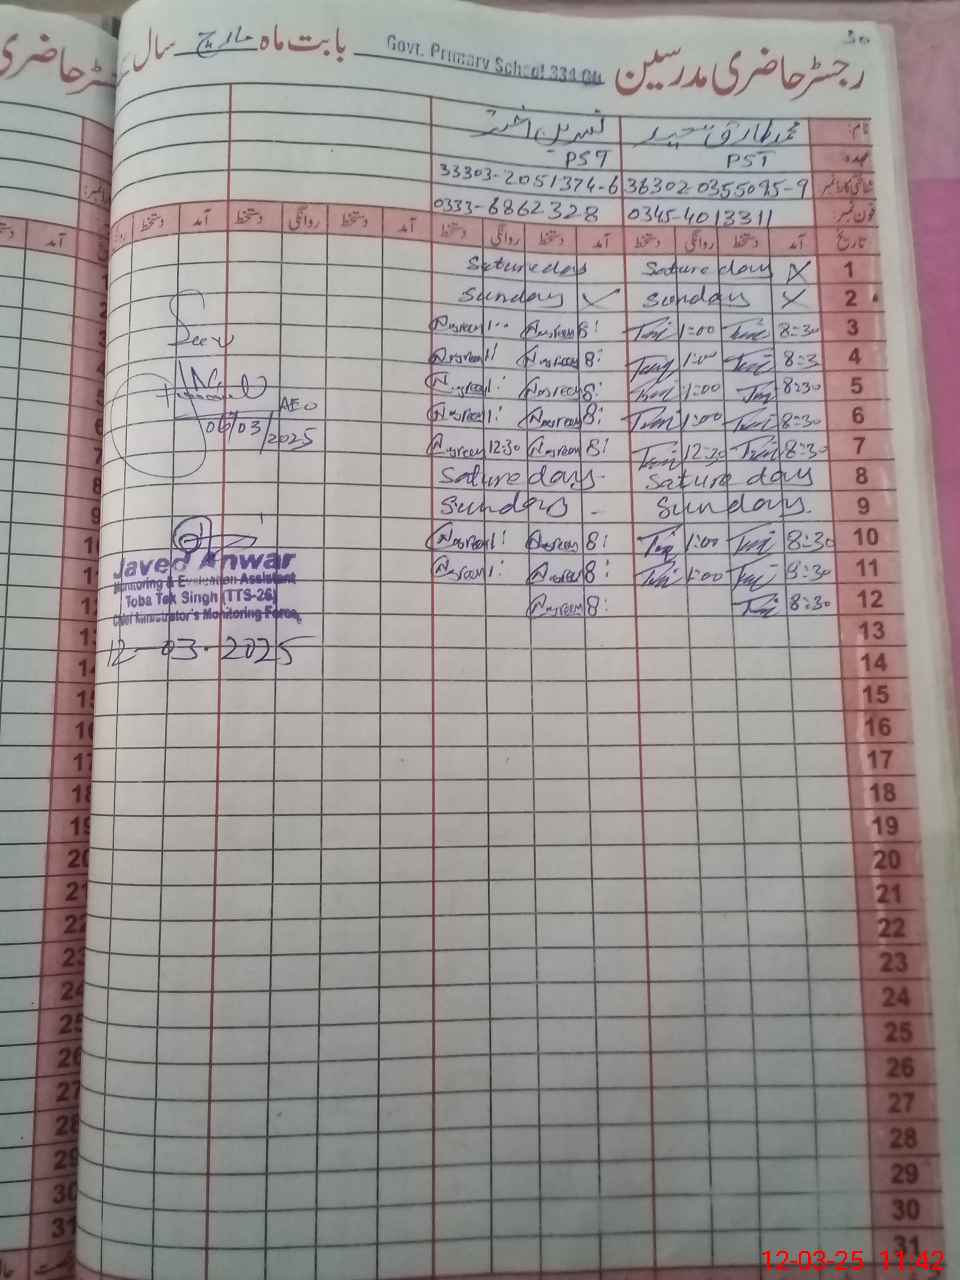 30
رجسٹر حاضری مدرسین Govt. Primary School 334 بابت ماہ مارچ سال
نام: محمد طارق سعید نسرین اختر
عہدہ PST PST
شناختی کارڈ نمبر 36302-0355095-9 33303-2051374-6
فون نمبر: 0345-4013311 0333-6862328
تاریخ آمد دستخط روانگی دستخط آمد دستخط روانگی دستخط آمد دستخط روانگی دستخط آمد دستخط
1 Sature day Sature day
2 Sunday Sunday
3 8:30 1:00 8:
4 8:3 1:00 8: 1:
5 8:30 1:00 8: 1:
6 8:30 1:00 8: 1:
7 8:30 12:30 8: 12:30
8 Sature day Sature day
9 Sunday Sunday
10 8:30 1:00 8: 1:
11 8:30 1:00 8: 1:
12 8:30 8:
13
14
15
16
17
18
19
20
21
22
23
24
25
26
27
28
29
30
31
Seen
AEO
06/03/2025
Javed Anwar
Monitoring & Evaluation Assistant
Toba Tek Singh (TTS-26)
Chief Ministrator's Monitoring Force,
12-03-2025
12-03-25 11:42